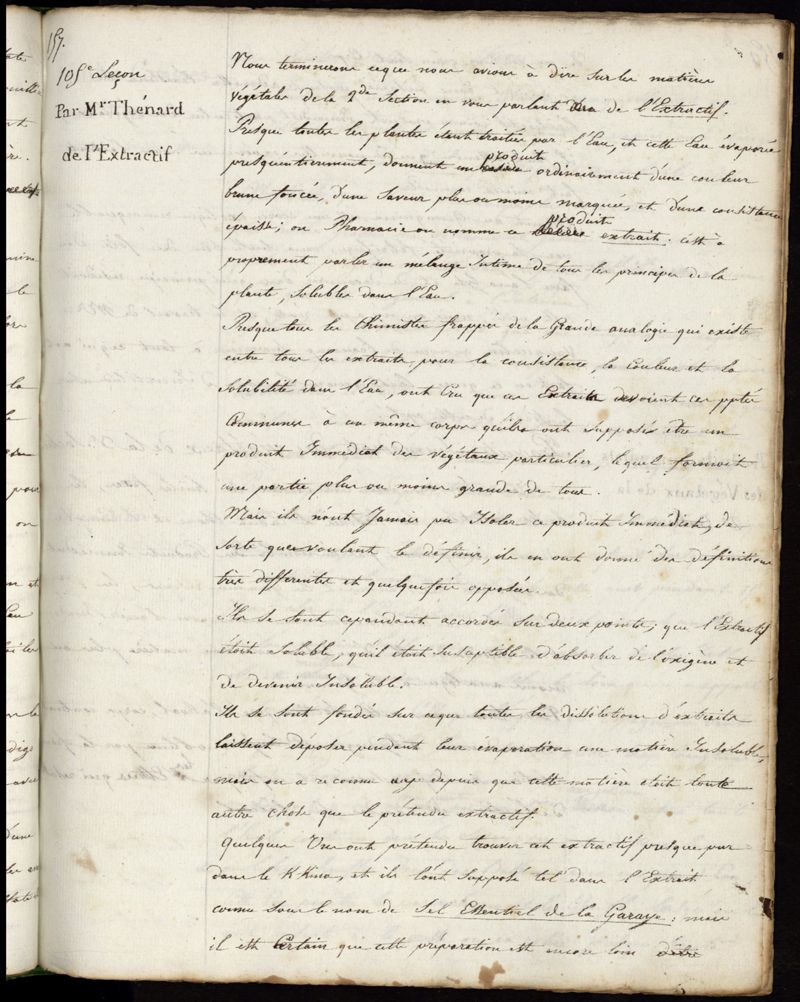 157.
105e Leçon
Par Mr Thénard
de l'Extractif
Nous terminerons ceque nous avions à dire sur les matières
végétales de la 2de Section en vous parlant de l'Extractif.
Presque toutes les plantes étant traitées par l'Eau, et cette Eau évaporée
presqu'entierement, donnent un produit ordinairement d'une couleur
brune foncée, d'une Saveur plus ou moins marquée, et d'une consistance
épaisse; en Pharmacie on nomme ce produit extrait: c'est à
proprement parler un mélange Intime de tous les principes de la
plante, solubles dans l'Eau.
Presque tous les Chimistes frappés de la Grande analogie qui existe
entre tous les extraits pour la consistance, la Couleur et la
Solubilité dans l'Eau, ont Cru que ces Extraits devoient ces pptés
Communes à un même corps qu'ils ont supposés être un
produit Immédiat des végétaux particulier, lequel formoit
une partie plus ou moins grande de tous.
Mais ils n'ont Jamais pu Isoler ce produit Immédiat, de
sorte que voulant le définir, ils en ont donné des définitions
très differentes et quelquefois opposées.
Ils se sont cependant accordés sur deux points; que l'Extractif
étoit Soluble, qu'il étoit susceptible d'absorber de l'oxigène et
de devenir Insoluble.
Ils se sont fondés sur ceque toutes les dissolutions d'extraits
laissent déposer pendant leur évaporation une matière Insoluble,
mais on a reconnu depuis que cette matière étoit toute
autre chose que le prétendu extractif.
Quelques Uns ont prétendu trouver cet extractif presque pur
dans le KKina, et ils l'ont supposé tel dans l'Extrait
connu sous le nom de Sel Essentiel de la Garaye; mais
il est Certain que cette préparation est encore loin d'être